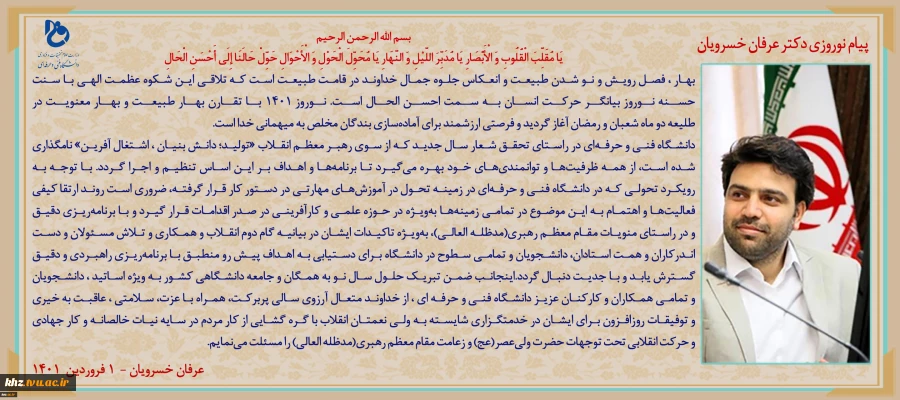 پیام نوروزی دکتر عرفان خسرویان
بسم الله الرحمن الرحیم
یَا مُقَلِّبَ الْقُلُوبِ وَ الْأَبْصَارِ یَا مُدَبِّرَ اللَّیْلِ وَ النَّهَارِ یَا مُحَوِّلَ الْحَوْلِ وَ الْأَحْوَالِ حَوِّلْ حَالَنَا إِلَى أَحْسَنِ الْحَالِ
بهار ، فصل رویش و نو شدن طبیعت و انعکاس جلوه جمال خداوند در قامت طبیعت است که تلاقی این شکوه عظمت الهی با سنت
حسنه نوروز بیانگر حرکت انسان به سمت احسن الحال است. نوروز ۱۴۰۱ با تقارن بهار طبیعت و بهار معنویت در
طلیعه دو ماه شعبان و رمضان آغاز گردید و فرصتی ارزشمند برای آماده‌سازی بندگان مخلص به میهمانی خدا است.
دانشگاه فنی و حرفه‌ای در راستای تحقق شعار سال جدید که از سوی رهبر معظم انقلاب «تولید؛ دانش بنیان ، اشتغال آفرین» نامگذاری
شده است، از همه ظرفیت‌ها و توانمندی‌های خود بهره می‌گیرد تا برنامه‌ها و اهداف بر این اساس تنظیم و اجرا گردد. با توجه به
رویکرد تحولی که در دانشگاه فنی و حرفه‌ای در زمینه تحول در آموزش‌های مهارتی در دستور کار قرار گرفته، ضروری است روند ارتقا کیفی
فعالیت‌ها و اهتمام به این موضوع در تمامی زمینه‌ها به‌ویژه در حوزه علمی و کارآفرینی در صدر اقدامات قرار گیرد و با برنامه‌ریزی دقیق
و در راستای منویات مقام معظم رهبری(مدظله العالی)، به‌ویژه تاکیدات ایشان در بیانیه گام دوم انقلاب و همکاری و تلاش مسئولان و دست
اندرکاران و همت استادان، دانشجویان و تمامی سطوح در دانشگاه برای دستیابی به اهداف پیش رو منطبق با برنامه‌ریزی راهبردی و دقیق
گسترش یابد و با جدیت دنبال گردد.اینجانب ضمن تبریک حلول سال نو به همگان و جامعه دانشگاهی کشور به ویژه اساتید ، دانشجویان
و تمامی همکاران و کارکنان عزیز دانشگاه فنی و حرفه ای ، از خداوند متعال آرزوی سالی پربرکت، همراه با عزت، سلامتی ، عاقبت به خیری
و توفیقات روزافزون برای ایشان در خدمتگزاری شایسته به ولی نعمتان انقلاب با گره گشایی از کار مردم در سایه نیات خالصانه و کار جهادی
و حرکت انقلابی تحت توجهات حضرت ولی‌عصر(عج) و زعامت مقام معظم رهبری(مدظله العالی) را مسئلت می‌نمایم.
عرفان خسرویان - ۱ فروردین ۱۴۰۱
khz.tvu.ac.ir